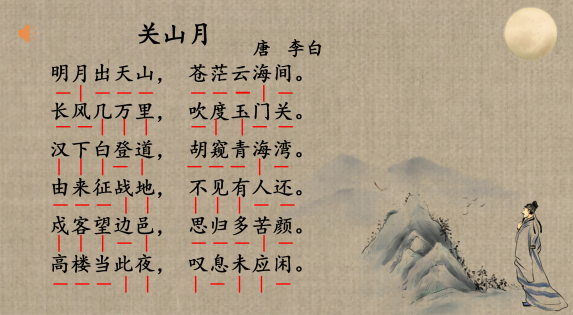 关山月
唐 李白
明月出天山， 苍茫云海间。
长风几万里， 吹度玉门关。
汉下白登道， 胡窥青海湾。
由来征战地， 不见有人还。
戍客望边邑， 思归多苦颜。
高楼当此夜， 叹息未应闲。